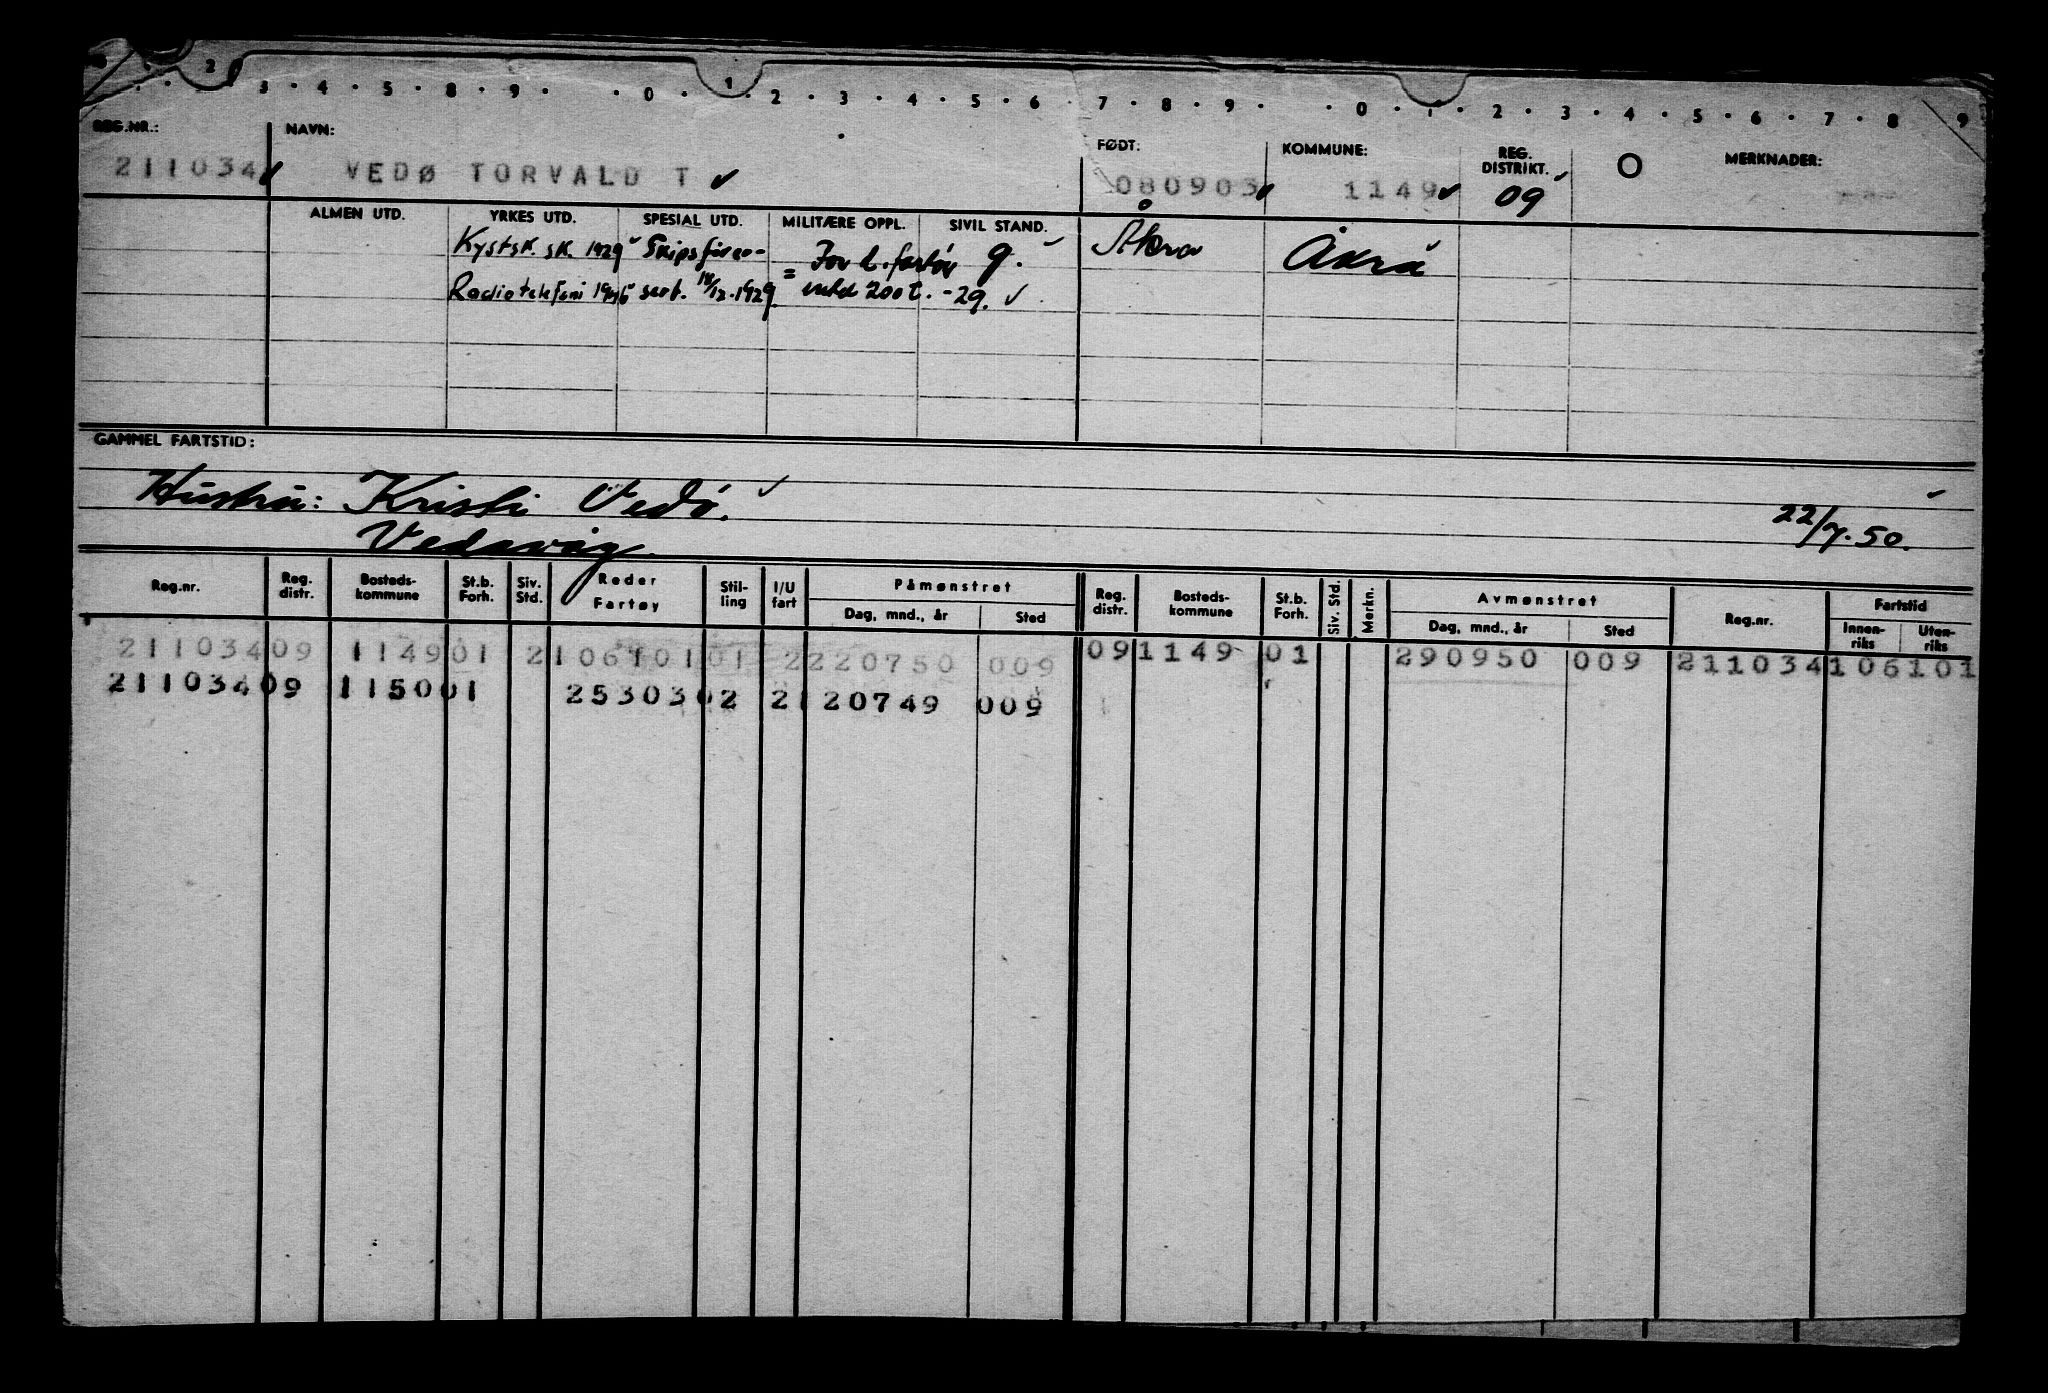 2
3 · 4 · 5 · 8 · 9 · · 0 · 1 · 2 · 3 · 4 · 5 · 6 · 7 · 8 · 9 · · 0 · 1 · 2 · 3 · 4 · 5 · 6 · 7 · 8 · 9
REG.NR.: NAVN: FØDT: KOMMUNE: REG. DISTRIKT. O MERKNADER:
211034 VEDØ TORVALD T 080903 1149 09
ALMEN UTD. YRKES UTD. SPESIAL UTD. MILITÆRE OPPL. SIVIL STAND.
Kystsk. sk. 1929 Skipsfører- = For h. fartøy g. Åkra Åkra
Radiotelefoni 1946 sert. 18/12-1929 inntil 200 t. -29.
GAMMEL FARTSTID:
Hustru: Kristi Vedø.
Vedavåg 22/7.50.
Reg.nr. Reg. distr. Bosteds-kommune St.b. Forh. Siv. Std. Reder Fartøy Stil-ling I/U fart Påmønstret Reg. distr. Bosteds-kommune St.b. Forh. Siv. Std. Merkn. Avmønstret Reg.nr. Fartstid
Dag, mnd., år Sted Dag, mnd., år Sted Innen-riks Uten-riks
211034 09 1149 01 2106101 01 2 220750 009 09 1149 01 290950 009 211034 106101
211034 09 1150 01 253030 2 2 120749 009